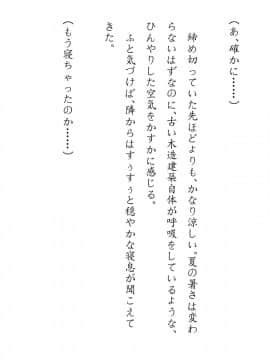 (あ、確かに……)
締め切っていた先ほどよりも、かなり涼しい。夏の暑さは変わ
らないはずなのに、古い木造建築自体が呼吸をしているような、
ひんやりした空気をかすかに感じる。
ふと気づけば、隣からはすぅすぅと穏やかな寝息が聞こえて
きた。
(もう寝ちゃったのか……)